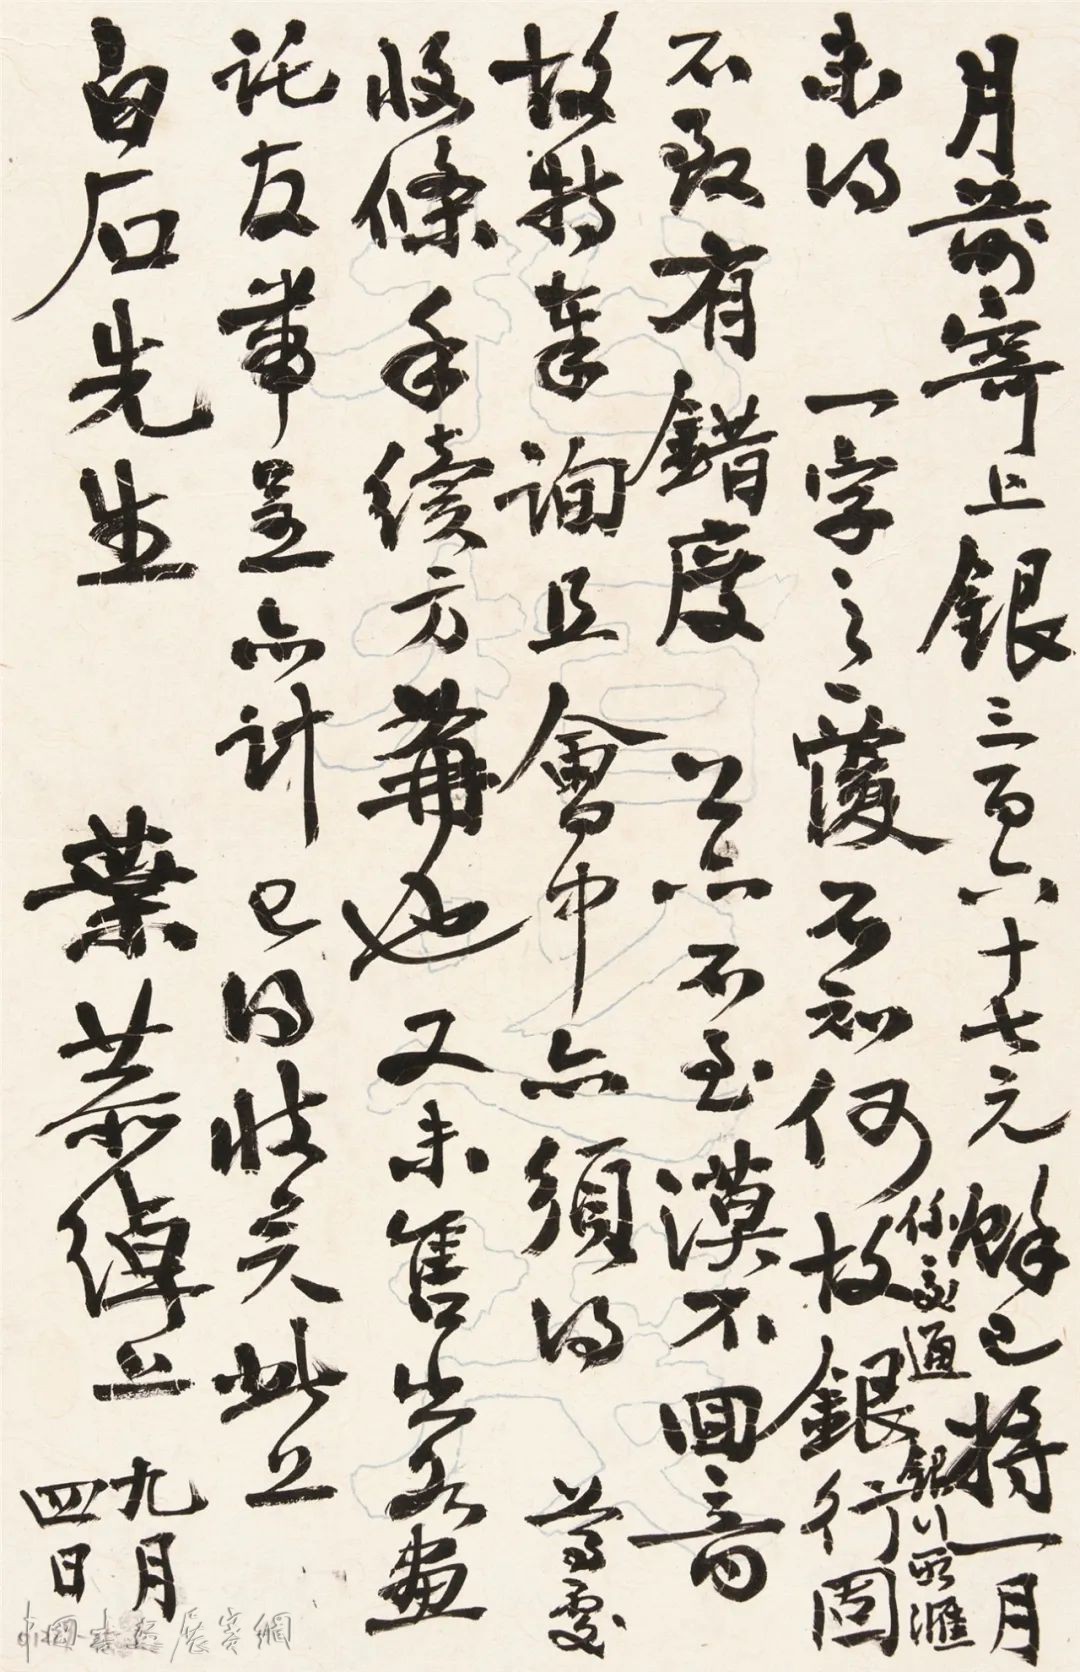 月前寄上銀三百六十七元餘已將一月
係交通銀行所滙
未得一字之覆不知何故銀行固
不致有錯度公亦不至漠不回音
故特奉詢且會中亦須得尊處
收條手續方備也又未售出各畫
託友帶呈亦計已得收矣此上
白石先生
葉恭綽上
九月
四日
中國書畫展賽網